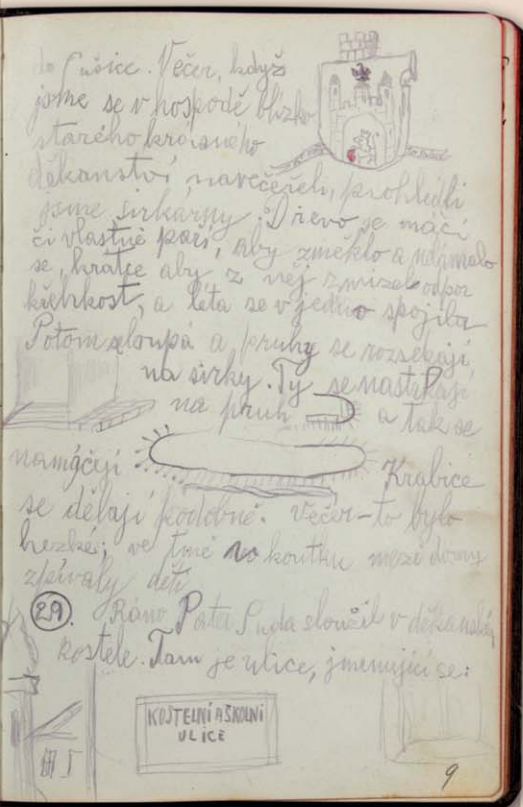 do Sušice. Večer, když
jsme se v hospodě blízko
starého krásného
děkanství navečeřeli, prohlédli
jsme sirkárny. Dřevo se máčí
či vlastně paří, aby změklo a
se, krátce aby z něj zmizel odpor
křehkost, a léta se v jedno spojila
Potom sloupá a pruhy se rozsekají
na sirky. Ty se nastrkají
na pruh a tak se
namáčejí Krabice
se dělají podobně. Večer-to bylo
hezké; ve tmě v koutku mezi domy
zpívaly děti
29. Ráno Pater Suda sloužil v děkanském
kostele. Tam je ulice, jmenující se:
KOSTELNÍ A ŠKOLNÍ
ULICE
9